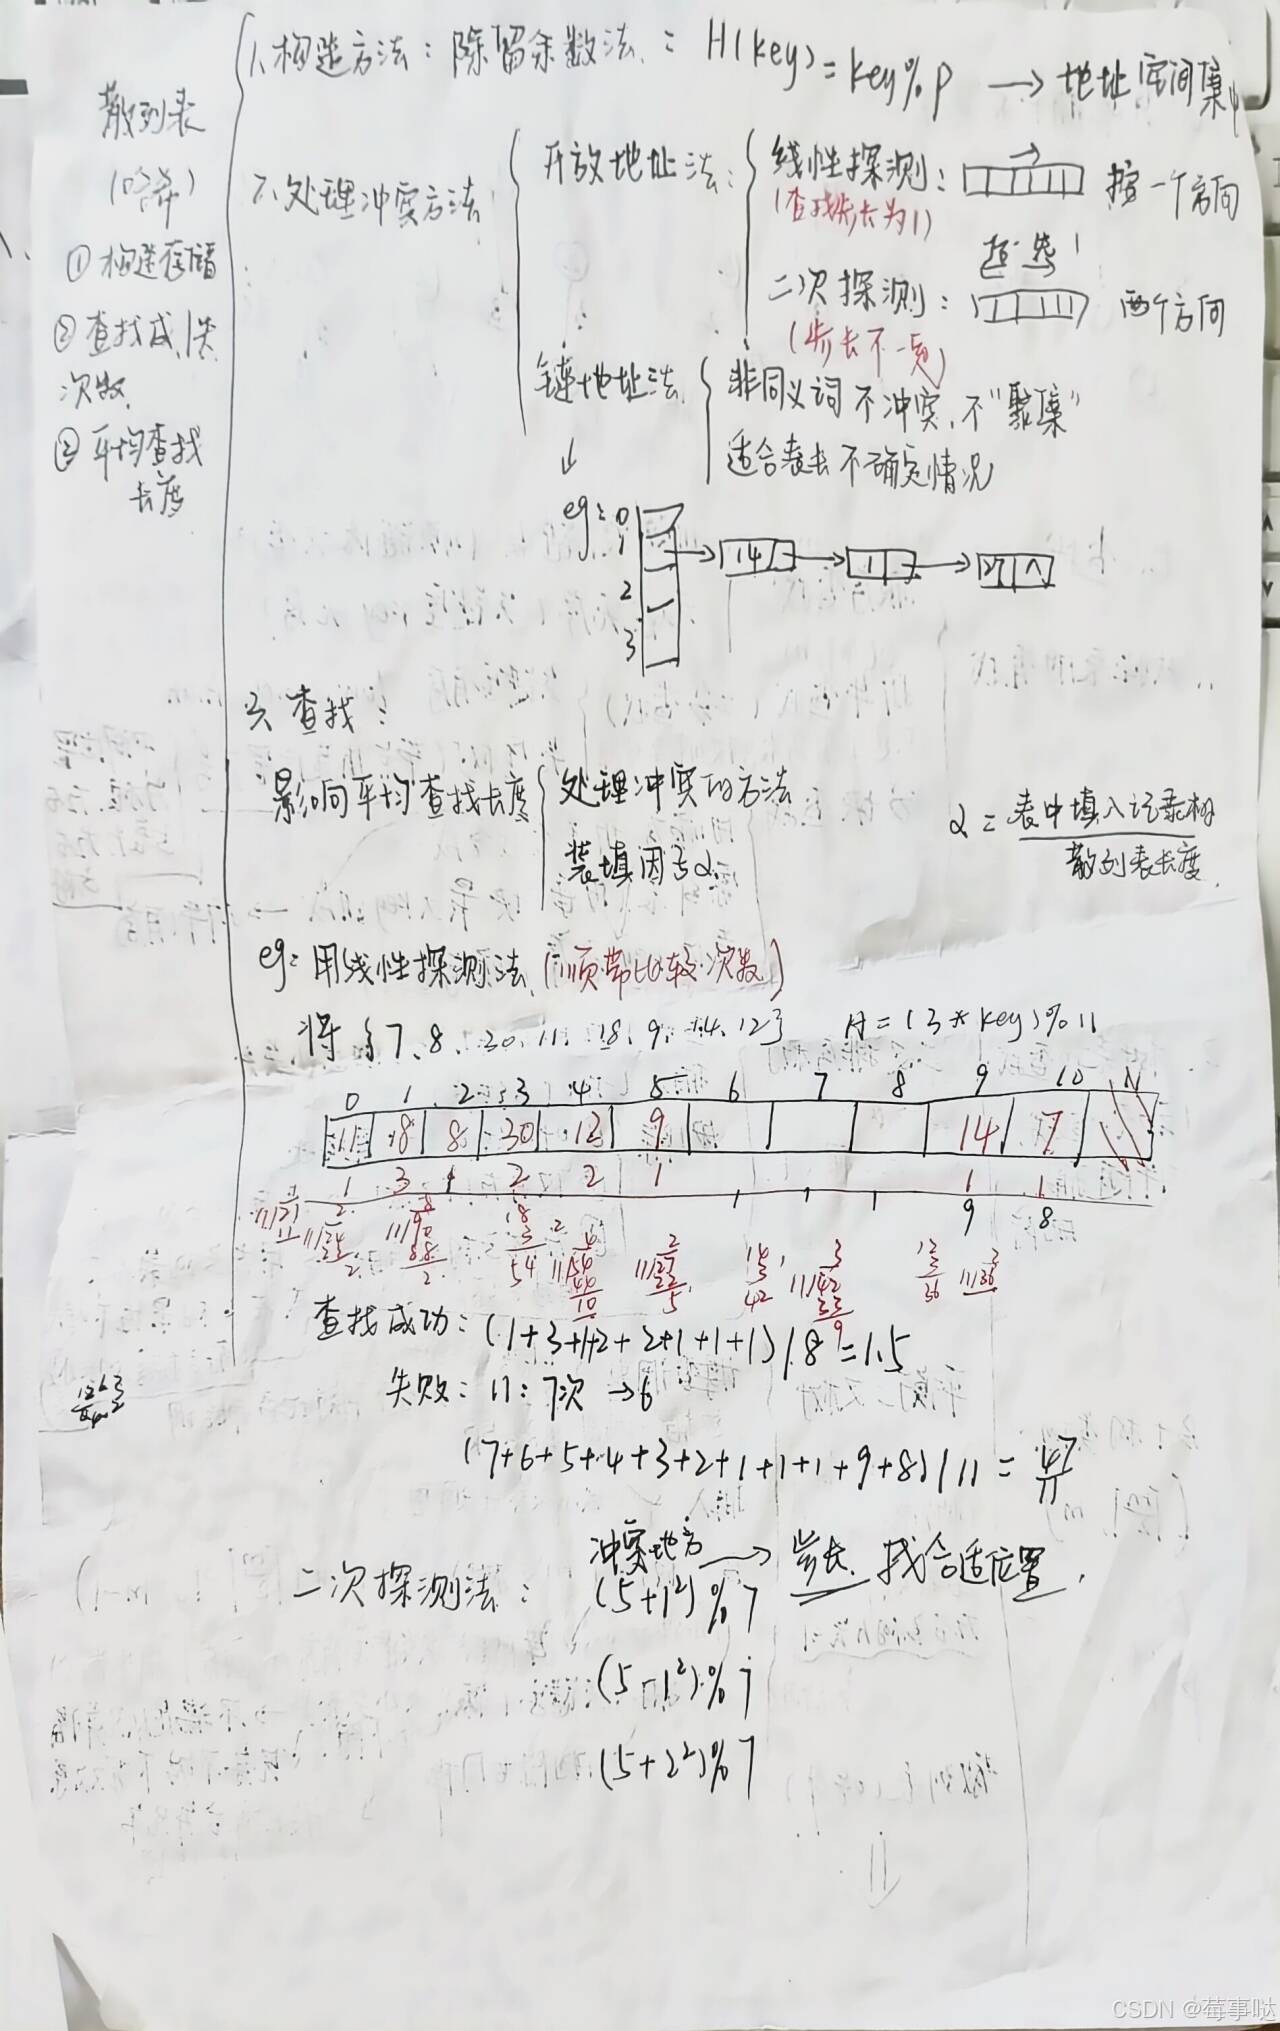 散列表
(哈希)
① 构造存储
② 查找成、失
次数
③ 平均查找
长度
1、构造方法：除留余数法：H(key)=key%p → 地址空间集中
2、处理冲突方法
开放地址法：
线性探测： 按一个方向
(查找步长为1)
二次探测： 两个方向
(步长不一定)
链地址法
非同义词不冲突、不"聚集"
适合表长不确定情况
eg: 0
1 14 1 27 ∧
2
3
3、查找：
影响平均查找长度
处理冲突的方法
装填因子α
α = 表中填入记录数
散列表长度
eg: 用线性探测法、(顺带比较次数)
将{7、8、30、11、18、9、14、12} H=(3*key)%11
0 1 2 3 4 5 6 7 8 9 10
11 8 8 30 12 9 14 7
1 3 1 2 2 1 1 1
9 8
查找成功：(1+3+1+2+2+1+1+1)/8=1.5
失败：11：7次 → 6
(7+6+5+4+3+2+1+1+1+9+8)/11 = 47/11
二次探测法：
冲突地方 → 步长、找合适位置、
(5+1²)%7
(5-1²)%7
(5+2²)%7
CSDN @莓事哒